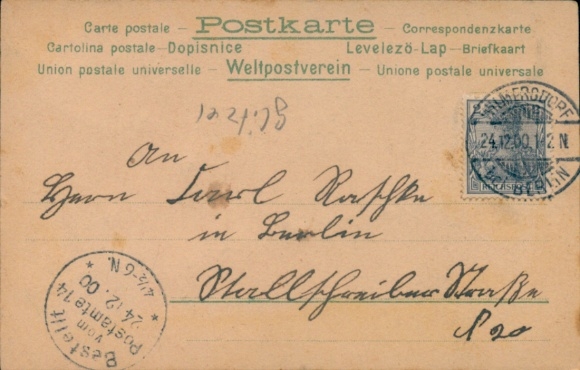 Carte postale – Postkarte – Correspondenzkarte
Cartolina postale – Dopisnice Levelezö-Lap – Briefkaart
Union postale universelle – Weltpostverein – Unione postale universale
WILMERSDORF
24.12.00.1-2N.
BERLIN
An
Herrn Carl Raschke
in Berlin
Stallschreiber Straße
N 20
Bestellt
vom
Postamte 14
24.12.00
4½-6N.